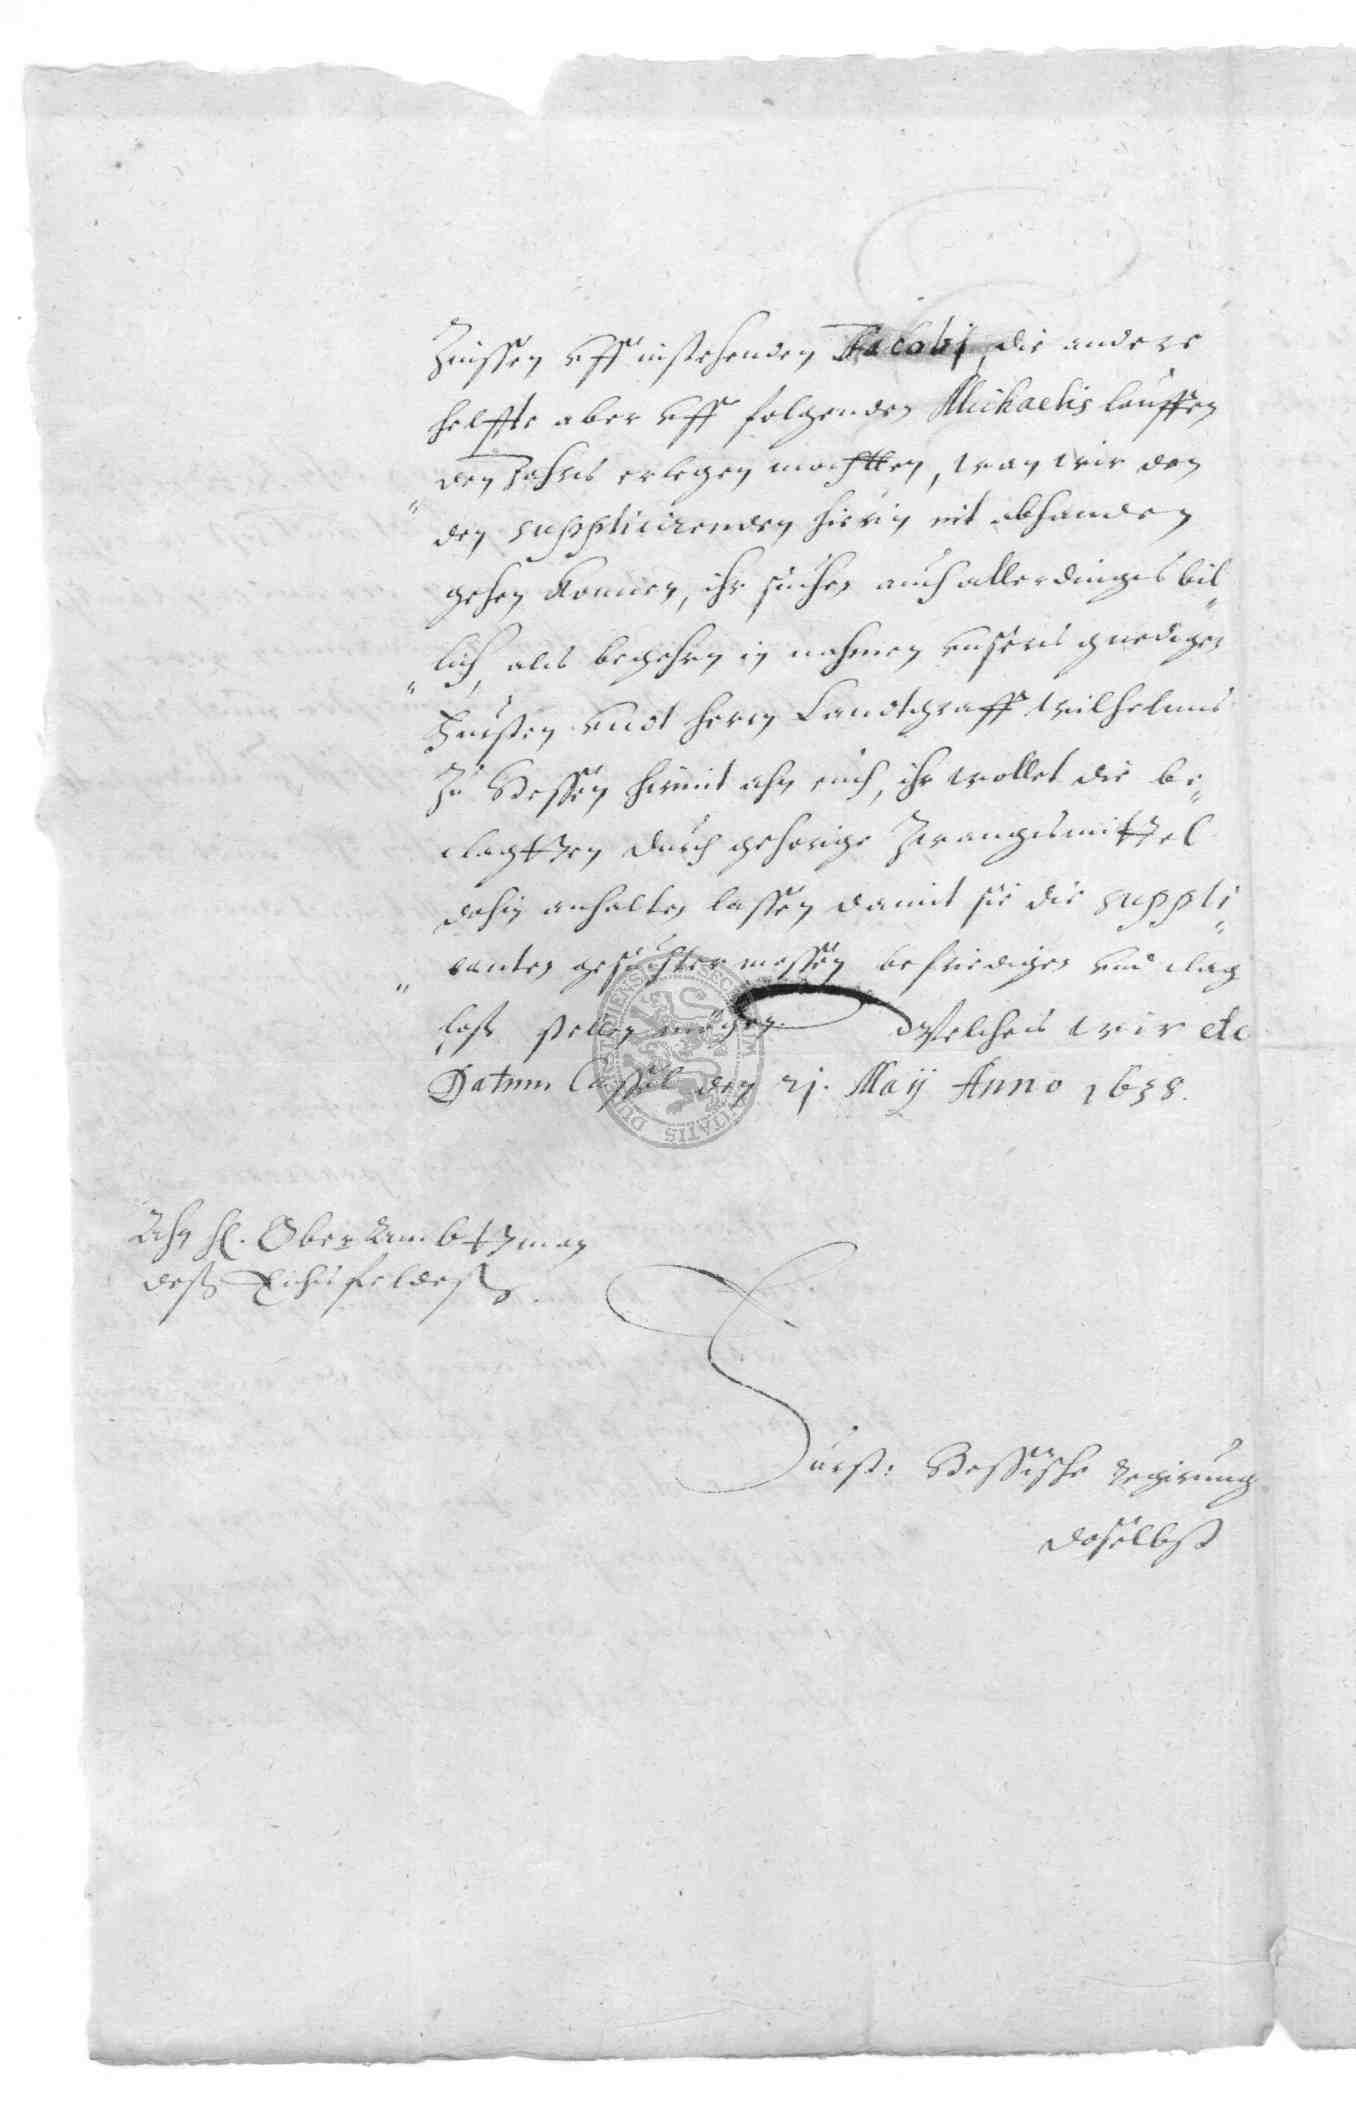 Zinssen uff instehenden Jacobi, die andere
helffte aber uff folgenden Michaelis lauffen
den Jahrs erlegen mochtten, wan wir den
den supplicirenden hierin nit abhanden
gehen konnen, ihr suchen auch allerdings bil
lich, als begehrn in nahmen unsers gnedigen
Fursten undt herrn Landtgraff Wilhelms
Zu Hessen hiemit ahn euch, ihr wollet die be
clagtten durch gehorige Zwangsmittel
dahin anhalten lassen damit sie die suppli
canten gesuchter massen befriedigen und clag
loß stellen mögen. Welches wir etc
Datum Cassel den 21. Maÿ Anno 1638.
Ahn H. Ober Ambtman
deß Eichsfeldeß.
Furst: Hessische Regirung
daselbst
DU ... ITATIS